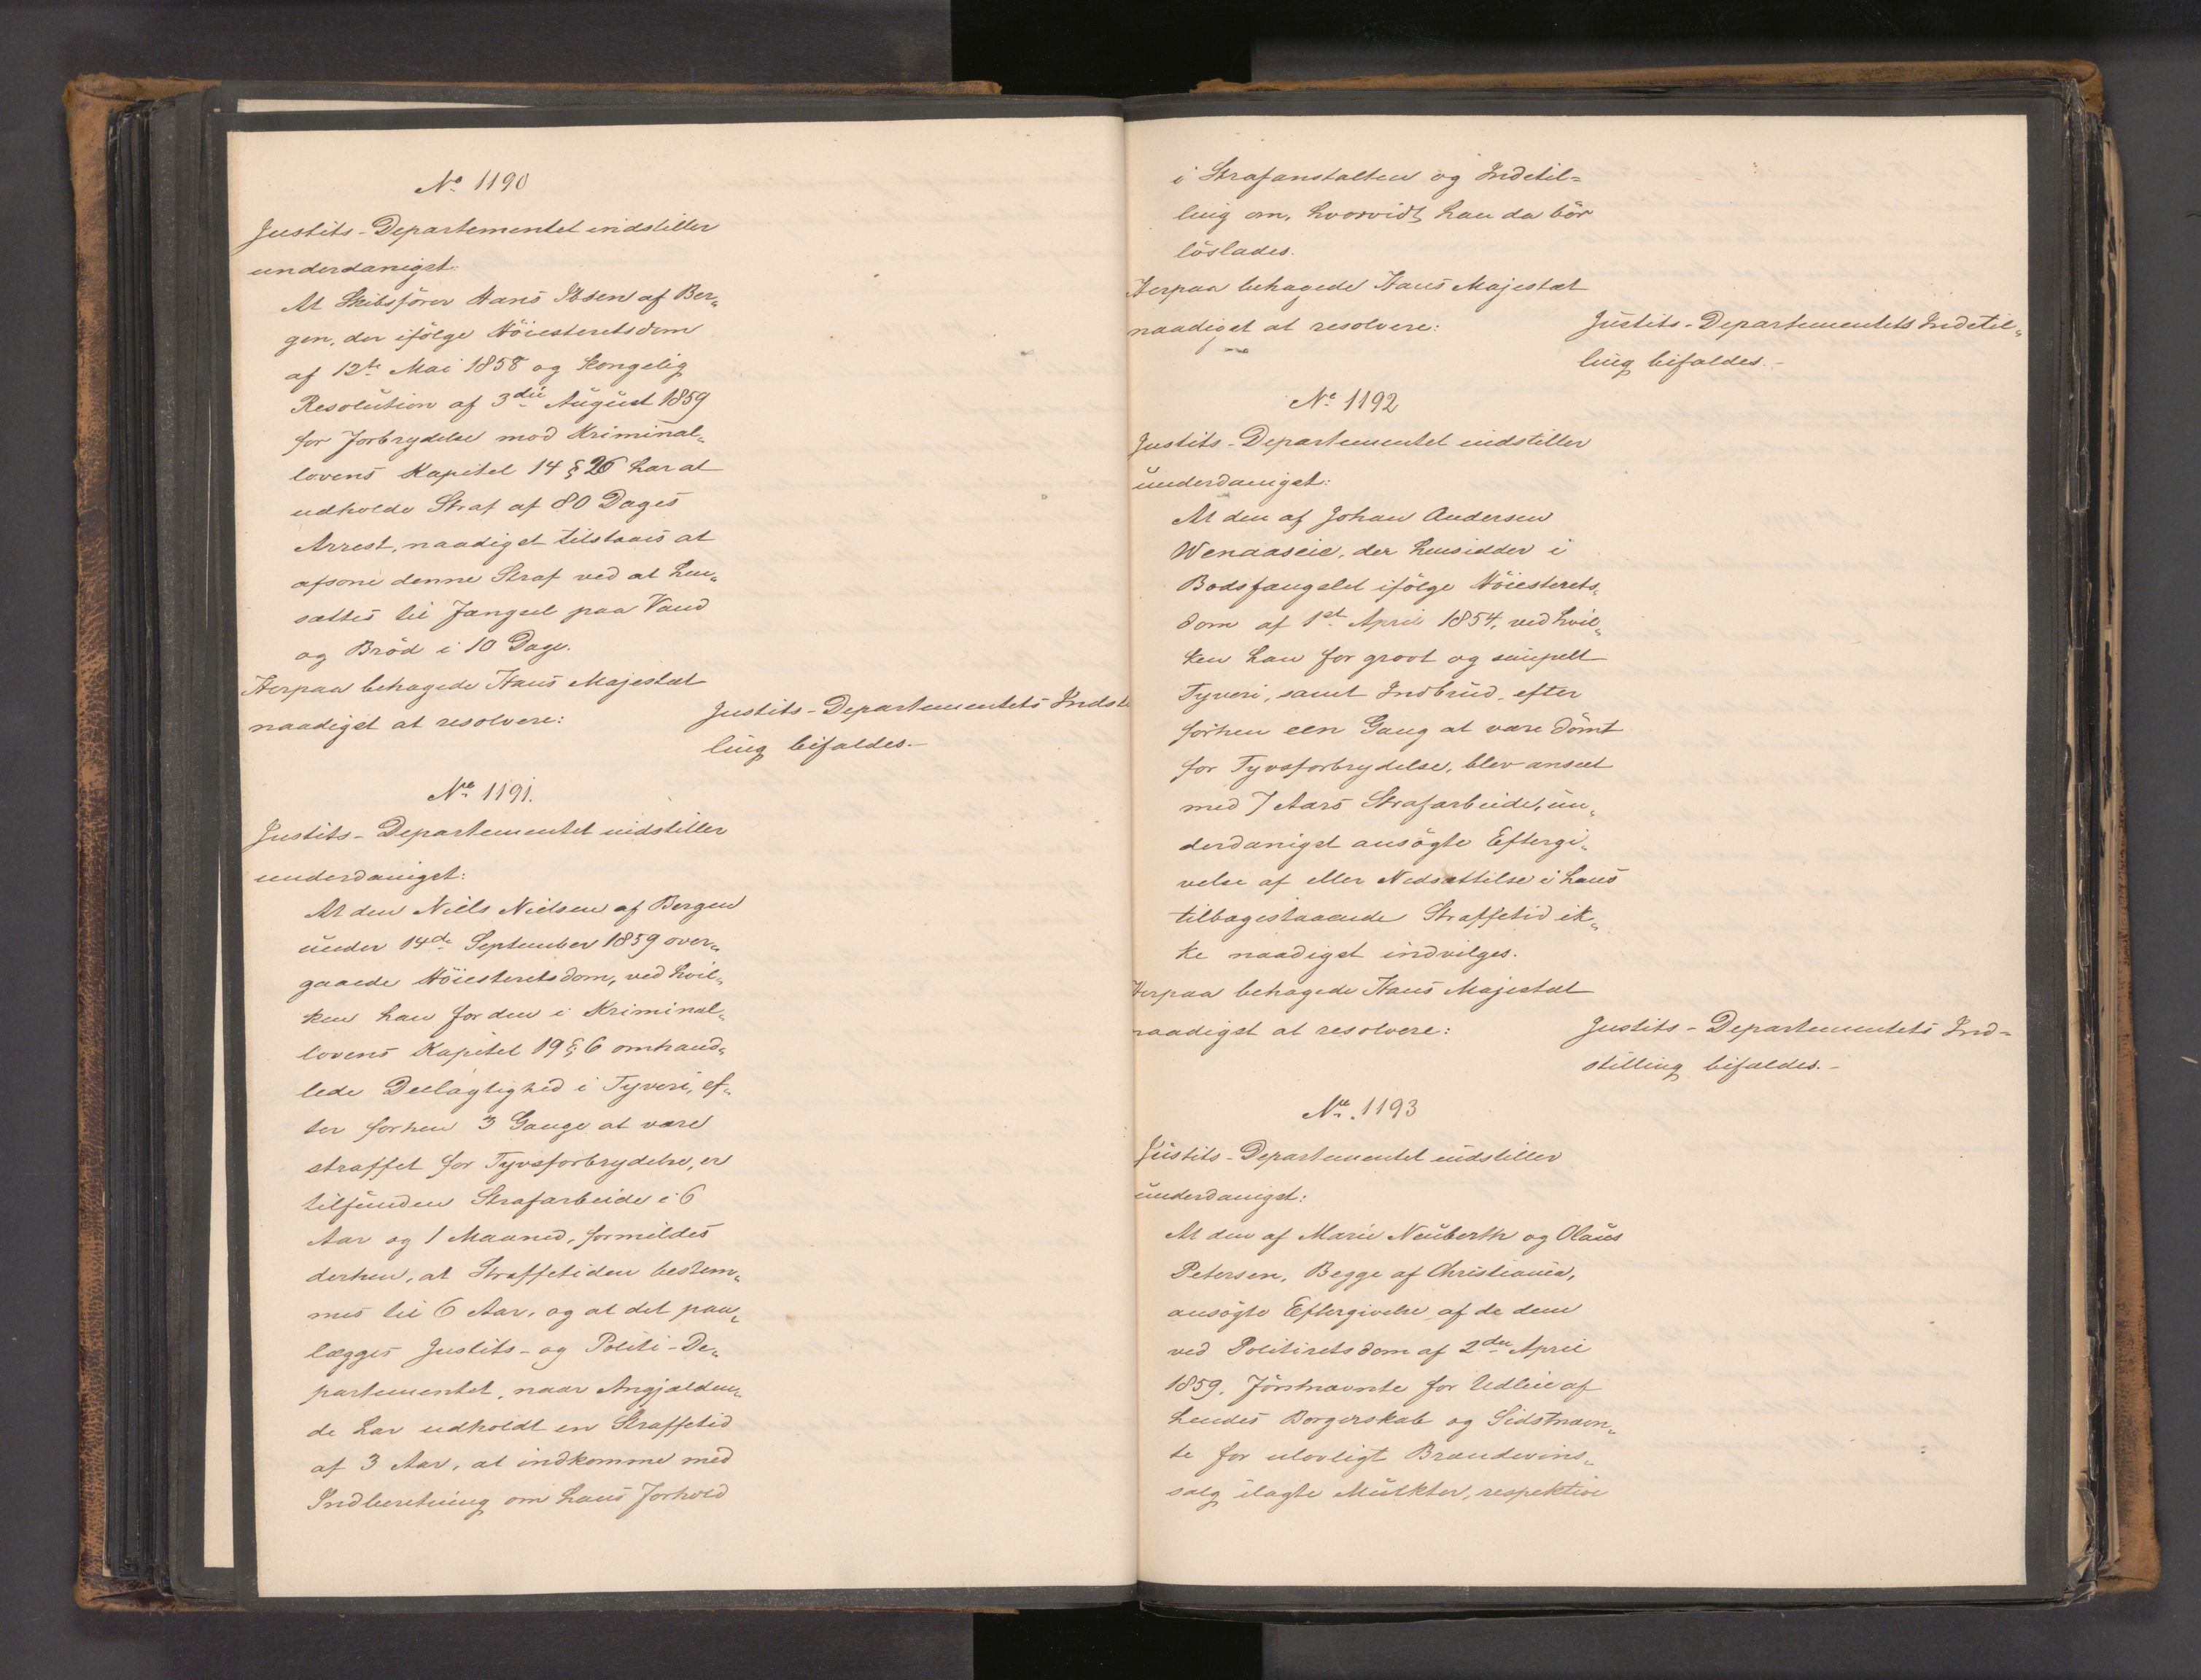 No 1190
Justits-Departementet indstiller
underdanigst:
At Skibsfører Hans Ibsen af Ber„
gen, der ifölge Höiesteretsdom
af 12te Mai 1858 og Kongelig
Resolution af 3die August 1859
for Forbrydelse mod Kriminal„
lovens Kapitel 14 § 26 har at
udholde Straf af 80 Dages
Arrest, naadigst tilstaaes at
afsone denne Straf ved at hen„
sættes til Fængsel paa Vand
og Bröd i 10 Dage.
Herpaa behagede Hans Majestæt
naadigst at resolvere:
Justits-Departementets Indstil
ling bifaldes.-
No 1191.
Justits-Departementet indstiller
underdanigst:
At den Niels Nielsen af Bergen
under 14de September 1859 over„
gaaede Höiesteretsdom, ved hvil„
ken han for den i Kriminal„
lovens Kapitel 19 § 6 omhand„
lede Deelagtighed i Tyveri, ef„
ter forhen 3 Gange at være
straffet for Tyvsforbrydelse, er
tilfunden Strafarbeide i 6
Aar og 1 Maaned, formildes
derhen, at Straffetiden bestem„
mes til 6 Aar, og at det paa„
lægges Justits- og Politi-De„
partementet, naar Angjælden„
de har udholdt en Straffetid
af 3 Aar, at indkomme med
Indberetning om hans Forhold
i Strafanstalten og Indstil=
ling om, hvorvidt han da bör
löslades.
Herpaa behagede Hans Majestæt
naadigst at resolvere:
Justits-Departementets Indstil„
ling bifaldes.-
No 1192
Justits-Departementet indstiller
underdanigst:
At den af Johan Andersen
Wenaaseie, der hensidder i
Bodsfængslet ifölge Höiesterets„
dom af 1st April 1854, ved hvil„
ken han for grovt og simpelt
Tyveri, samt Indbrud, efter
forhen een Gang at være dömt
for Tyvsforbrydelse, blev anseet
med 7 Aars Strafarbeide, un„
derdanigst ansögte Eftergi„
velse af eller Nedsættelse i hans
tilbagestaaende Straffetid ik„
ke naadigst indvilges.
Herpaa behagede Hans Majestæt
naadigst at resolvere:
Justits-Departementets Ind=
stilling bifaldes.-
No. 1193
Justits-Departementet indstiller
underdanigst:
At den af Marie Neuberth og Olaus
Petersen, Begge af Christiania,
ansögte Eftergivelse af de dem
ved Politiretsdom af 2den April
1859, Förstnævnte for Udleie af
hendes Borgerskab og Sidstnævn„
te for ulovligt Brændeviins„
salg ilagte Mulkter, respektive